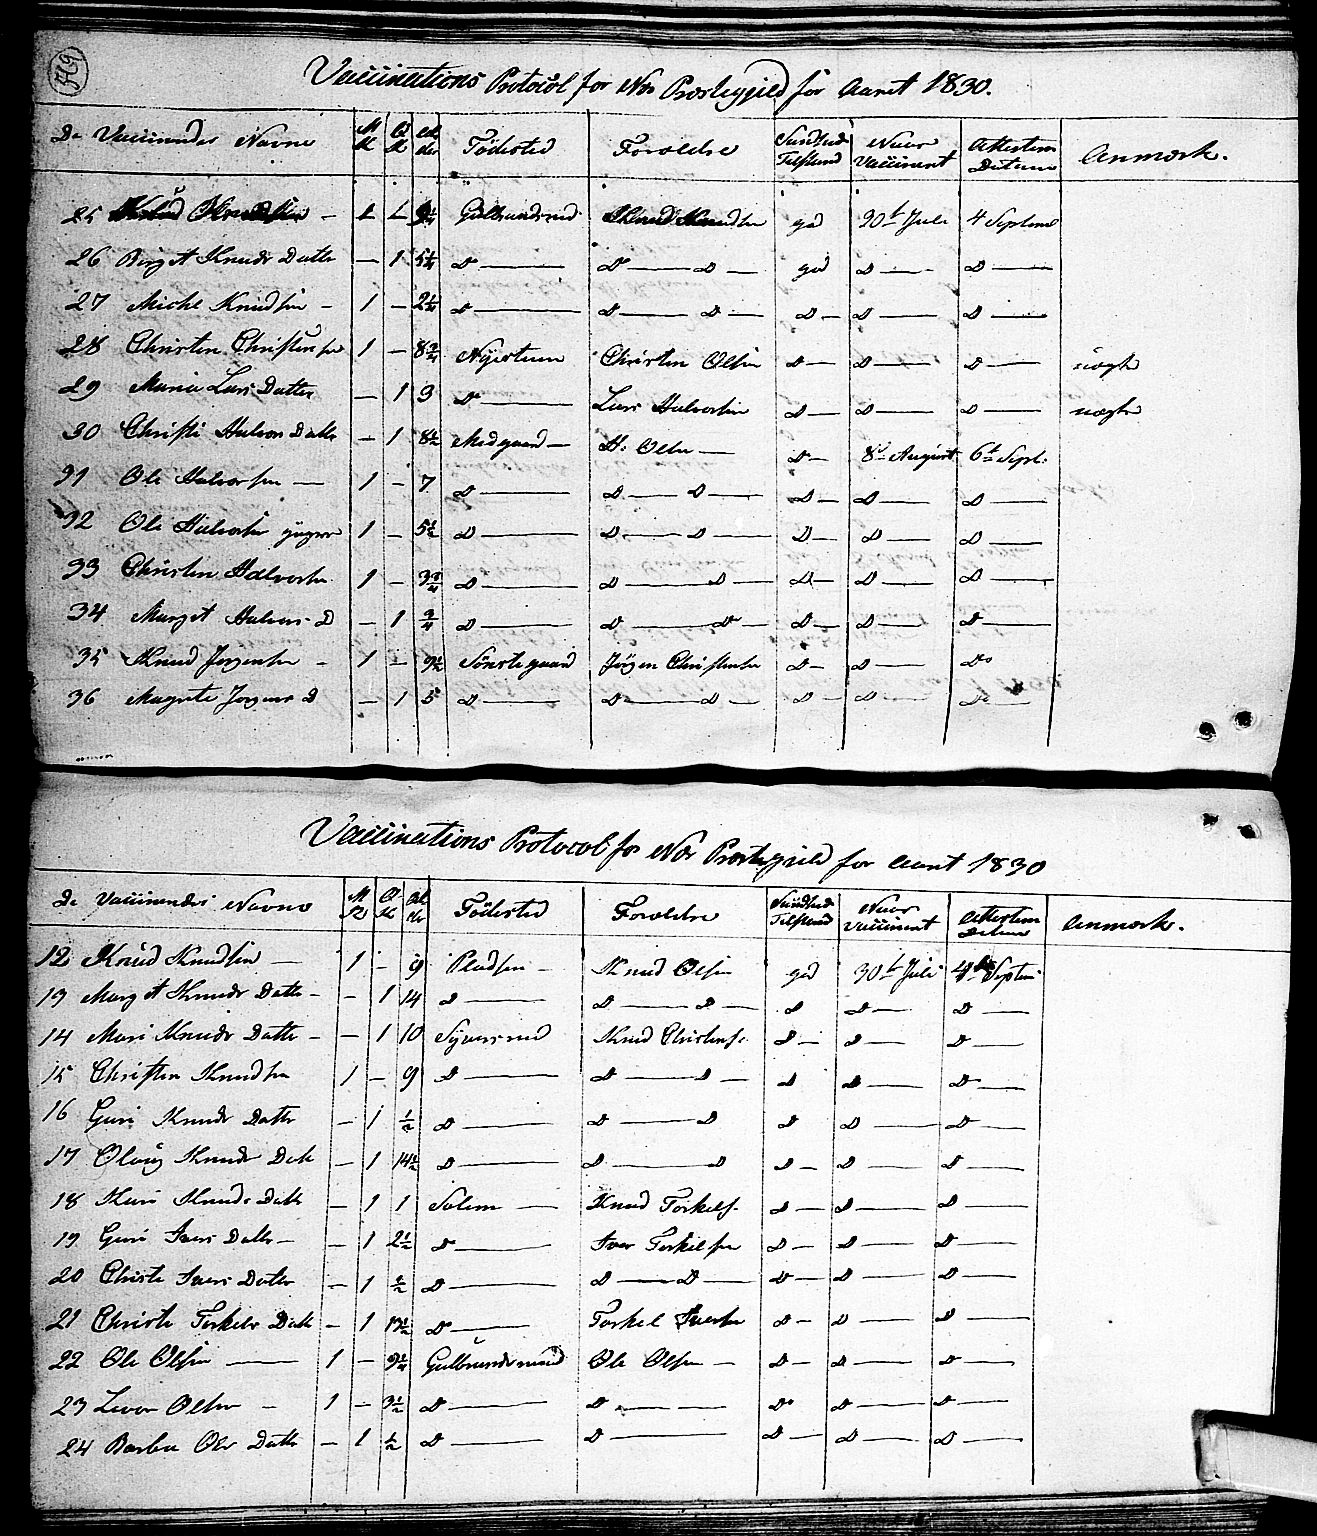 Vaccinations Protocol for Næs Præstegjeld for Aaret 1830.
De Vaccineredes Navne M K Q K Al der Födested Forældre Sundheds Tilstand Naar Vaccineret Attestens Datum Anmærk.
25 Knud Knudsen — 1 — Gulbrandsrud Knud Knudsen god 30t Juli 4 Septemb
26 Birgit Knuds Datter — 1 5¼ D — D — D — god D — D —
27 Michl Knudsen — 1 — 2¼ D — D — D — D — D — D —
28 Christen Christensen 1 — 8¾ Christen Olsen D — D — D —
29 Maria Lars Datter — 1 3 D — Lars Halvorsen D — D — D —
30 Christi Halvors Datter — 1 8½ Medgaard — H. Olsen — D — 8de August 6te Sept.
31 Ole Halvorsen — 1 — 7 D — D — D — D — D — D —
32 Ole Halvorsen yngere 1 — 5½ D — D — D — D — D — D —
33 Christen Halvorsen 1 — 3¾ D — D — D — D — D — D —
34 Margit Halvors D — 1 ¾ D — D — D — D — D — D —
35 Knud Jorgensen — 1 — 9½ Sönstegaard Jörgen Christensen D — D — Do
36 Magrete Jorgens D — 1 5 D — D — D — D — D — Do —
Vaccinations Protocol for Næs Præstegjeld for Aaret 1830
De Vaccineredes Navne M K Q K Al der Födested Forældre Sundheds Tilstand Naar Vaccineret Attestens Datum Anmærk.
12 Knud Knudsen — 1 — 9 Pladsen — Knud Olsen god 30t Juli 4de Septem
13 Margit Knuds Datter — — 1 14 D — D — D — D D — D —
14 Mari Knuds Datter — — 1 10 Knud Christens. D — D — D —
15 Christen Knudsen 1 — 9 D — D — D — D D — D —
16 Guri Knuds Datter — 1 ½ D — D — D D D — D —
17 Olaug Knuds Datt — 1 14½ D — D — D D — D — D —
18 Kari Knuds Datt — 1 1 Solem — Knud Torkels. D — D — D —
19 Guri Ivers Datter — — 1 2½ D — Iver Torkelsen D — D — D —
20 Christi Ivers Datter — 1 ½ D — D — D — D — D — D —
21 Christi Torkels Datt — 1 D — Torkel Iversen D — D — D —
22 Ole Olsen — 1 — 9¼ Gulbrandsrud Ole Olsen — D — D — D —
23 Levor Olsen — 1 — 3½ D — D — Do D — D —
24 Barbra Ols Datter — 1 ½ D — D — D — D — D —